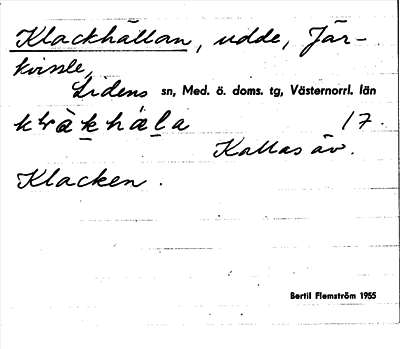 Klackhällan, udde, Jär-
kvissle,
Lidens sn, Med. ö. doms. tg, Västernorrl. län
17.
Kallas äv.
Klacken.
Bertil Flemström 1955